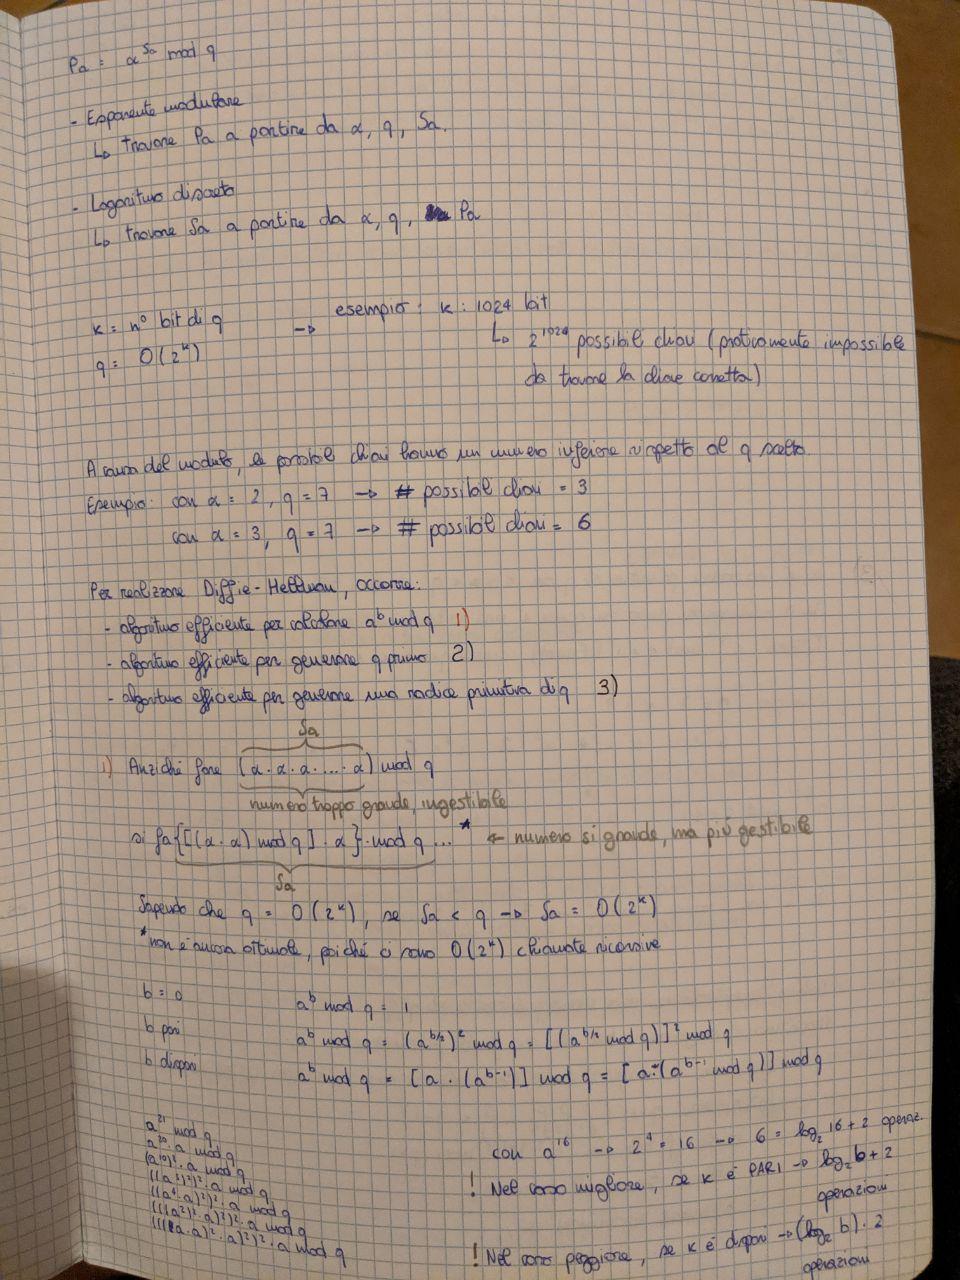 Pa = α^Sa mod q
- Esponente modulare
↳ trovare Pa a partire da α, q, Sa.
- Logaritmo discreto
↳ trovare Sa a partire da α, q, Pa
k = n° bit di q → esempio: k: 1024 bit
q = O(2^k) ↳ 2^1024 possibili chiavi (praticamente impossibile
da trovare la chiave corretta)
A causa del modulo, le possibili chiavi hanno un numero inferiore rispetto al q scelto.
Esempio: con α = 2, q = 7 → # possibili chiavi = 3
con α = 3, q = 7 → # possibili chiavi = 6
Per realizzare Diffie-Hellman, occorre:
- algoritmo efficiente per calcolare a^b mod q 1)
- algoritmo efficiente per generare q primo 2)
- algoritmo efficiente per generare una radice primitiva di q 3)
Sa
1) Anziché fare (α · α · α · ... · α) mod q
numero troppo grande, ingestibile
si fa {[(α · α) mod q] · α} · mod q ... * ← numero sì grande, ma più gestibile
Sa
Sapendo che q = O(2^k), se Sa < q → Sa = O(2^k)
*non è ancora ottimale, poiché ci sono O(2^k) chiamate ricorsive
b = 0 a^b mod q = 1
b pari a^b mod q = (a^b/2)² mod q = [(a^b/2 mod q)]² mod q
b dispari a^b mod q = [a · (a^b-1)] mod q = [a · (a^b-1 mod q)] mod q
a^21 mod q
a^20 · a mod q
(a^10)² · a mod q
((a^5)²)² · a mod q
((a^4 · a)²)² · a mod q
(((a²)² · a)²)² · a mod q
con a^16 → 2^4 = 16 → 6 = log₂ 16 + 2 operaz.
! Nel caso migliore, se k è PARI → log₂ b + 2
operazioni
! Nel caso peggiore, se k è dispari → (log₂ b) · 2
operazioni